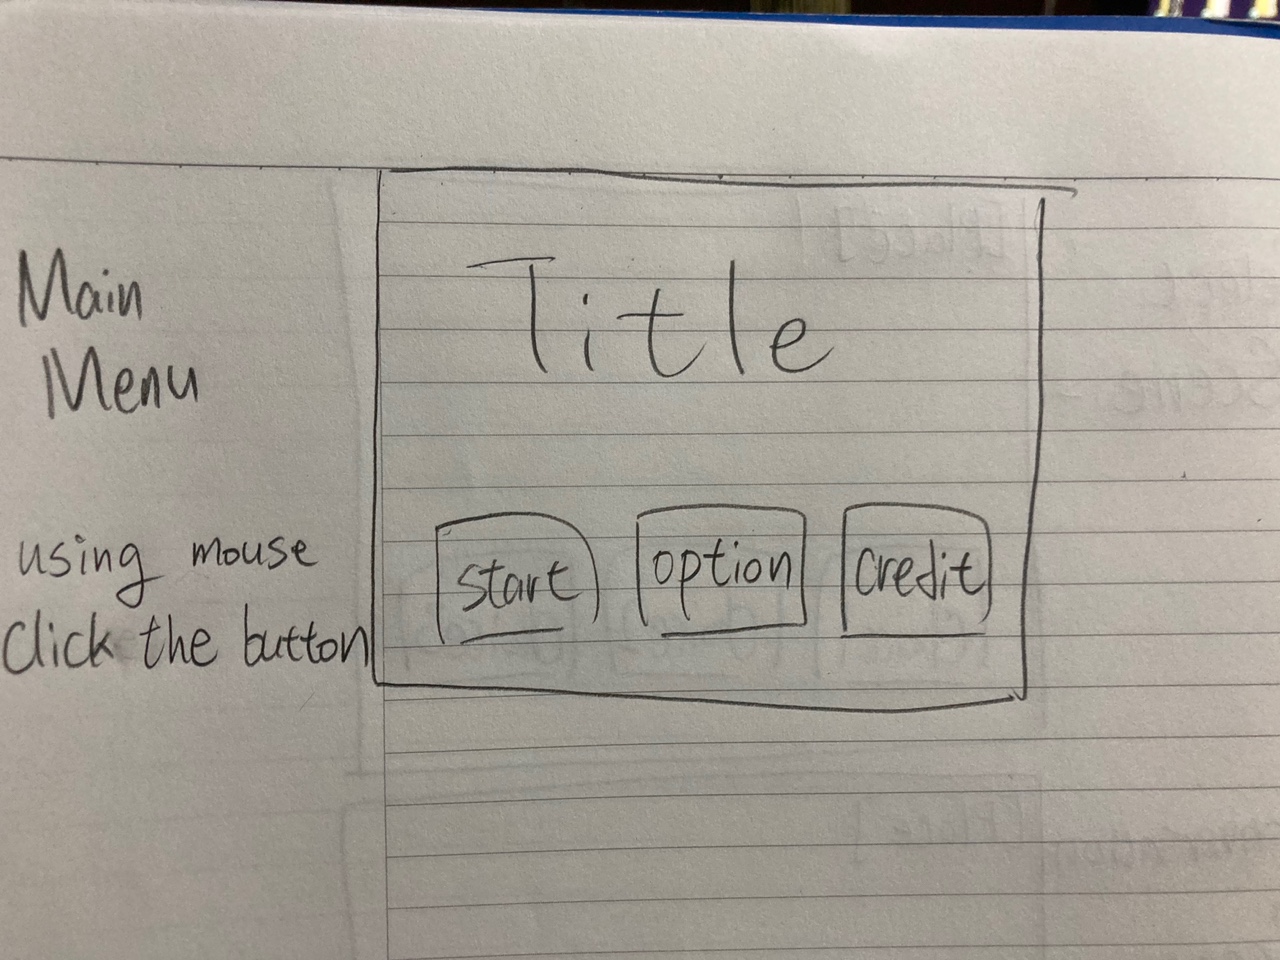 Main
Menu
Title
using mouse
Click the button
start
option
credit